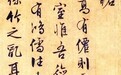 銘
高有僊則
室惟吾德
有鴻儒往
絲竹之亂耳